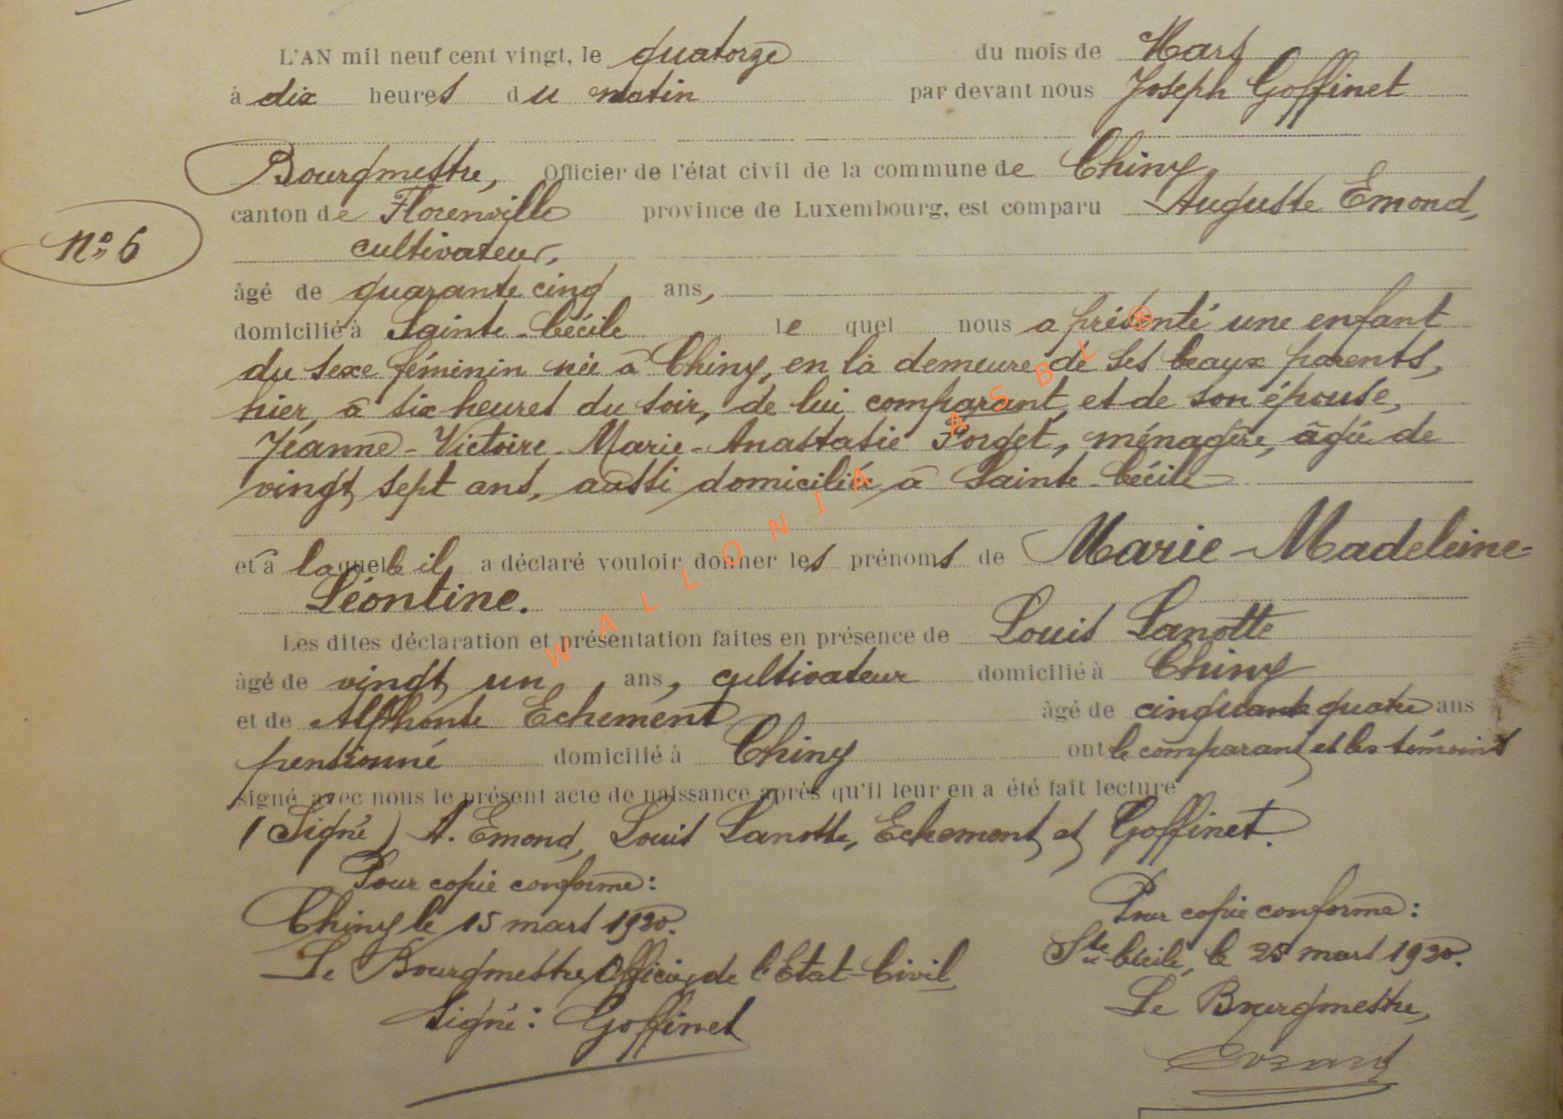 L'AN mil neuf cent vingt, le quatorze du mois de Mars
à dix heures du matin par devant nous Joseph Goffinet
Bourgmestre, Officier de l'état civil de la commune de Chiny,
canton de Florenville province de Luxembourg, est comparu Auguste Emond,
cultivateur,
N° 6
âgé de quarante cinq ans,
domicilié à Sainte-Cécile le quel nous a présenté une enfant
du sexe féminin née à Chiny, en la demeure de ses beaux parents,
hier, à six heures du soir, de lui comparant, et de son épouse,
Jeanne-Victoire-Marie-Anastasie Forget, ménagère, âgée de
vingt sept ans, aussi domiciliée à Sainte-Cécile
et à laquelle il a déclaré vouloir donner les prénoms de Marie-Madeleine-
Léontine.
Les dites déclaration et présentation faites en présence de Louis Lanotte
âgé de vingt un, ans, cultivateur domicilié à Chiny
et de Alphonse Echement âgé de cinquante quatre ans
pensionné domicilié à Chiny ont le comparant et les témoins
signé avec nous le présent acte de naissance après qu'il leur en a été fait lecture
(Signé) A. Emond, Louis Lanotte, Echement et Goffinet.
Pour copie conforme:
Chiny le 15 mars 1920.
Le Bourgmestre, Officier de l'Etat-Civil
signé: Goffinet
Pour copie conforme:
Ste Cécile, le 25 mars 1920.
Le Bourgmestre,
WALLONIA ASBL ®